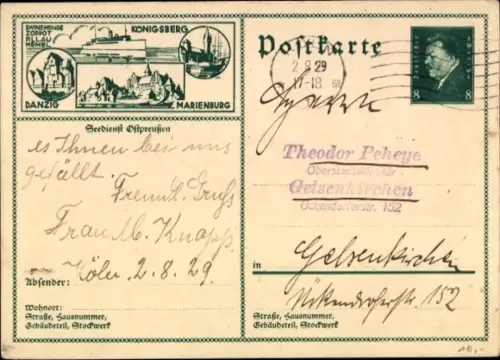 SWINEMÜNDE
ZOPPOT
PILLAU
MEMEL
KÖNIGSBERG
DANZIG
MARIENBURG
Seedienst Ostpreußen
es Ihnen bei uns
gefällt.
Freundl. Gruß
Frau M. Knapp.
Absender: Köln 2.8.29
Wohnort:
Straße, Hausnummer,
Gebäudeteil, Stockwerk
Postkarte
29
17-18
8 8
Herrn
Theodor Peheye
Gelsenkirchen
Ückendorferstr. 152
in Gelsenkirchen
Ückendorferstr. 152
Straße, Hausnummer,
Gebäudeteil, Stockwerk
10,-